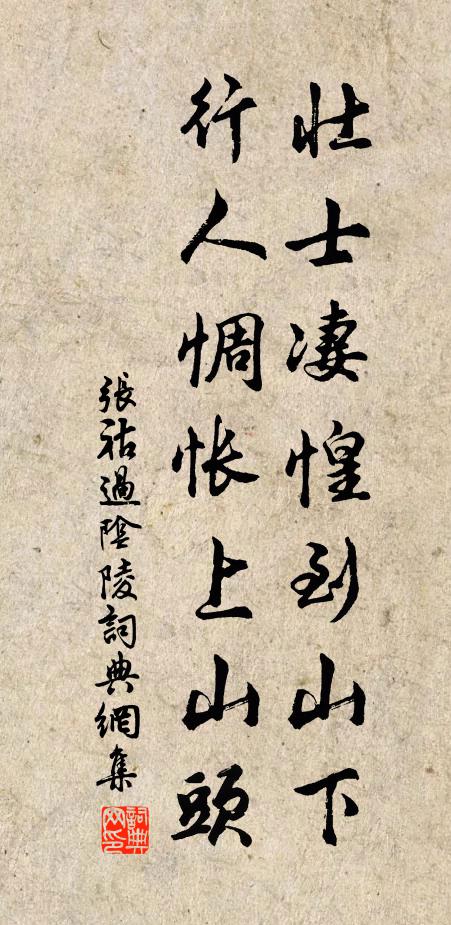 壮士凄惶到山下
行人惆怅上山頭
張祜過陰陵詞典網集
詞典网印